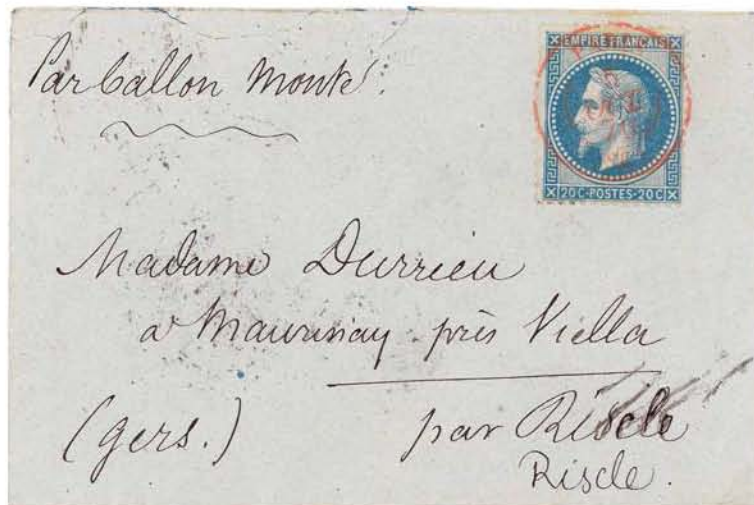 Par ballon monté.
EMPIRE FRANÇAIS
20C-POSTES-20C
Madame Durrieu
a Maurinay près Viella
(gers.)
par Riscle
Riscle.